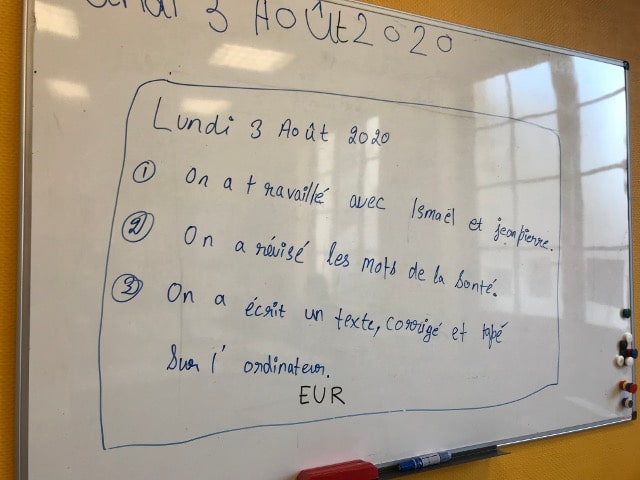 Lundi 3 Août 2020
Lundi 3 Août 2020
① On a travaillé avec Ismaël et jeanpierre.
② On a révisé les mots de la santé.
③ On a écrit un texte, corrigé et tapé
sur l' ordinateur.
EUR